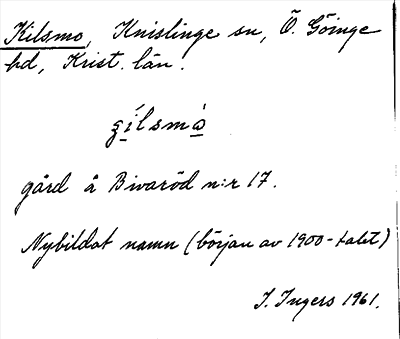 Kilsmo, Knislinge sn, Ö. Göinge
hd, Krist. län.
gård å Bivaröd n:r 17.
Nybildat namn (början av 1900-talet)
I. Ingers 1961.